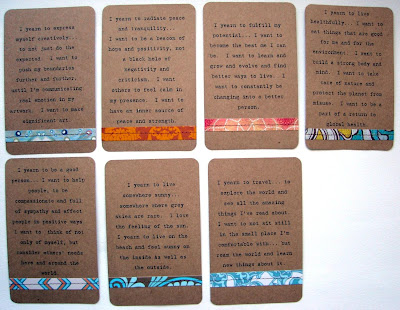 I yearn to express
myself creatively...
to not just do the
expected. I want to
push my boundaries
further and further,
until I'm communicating
real emotion in my
artwork. I want to make
significant art.
I yearn to radiate peace
and tranquility...
I want to be a beacon of
hope and positivity, not
a black hole of
negativity and
criticism. I want
others to feel calm in
my presence. I want to
have an inner source of
peace and strength.
I yearn to fulfill my
potential... I want to
become the best me I can
be. I want to learn and
grow and evolve and find
better ways to live. I
want to constantly be
changing into a better
person.
I yearn to live
healthfully... I want to
eat things that are good
for me and for the
environment. I want to
build a strong body and
mind. I want to take
care of nature and
protect the planet from
misuse. I want to be a
part of a return to
global health.
I yearn to be a good
person... I want to help
people, to be
compassionate and full
of sympathy and affect
people in positive ways
I want to think of not
only of myself, but
consider others' needs
here and around the
world.
I yearn to live
somewhere sunny...
somewhere where grey
skies are rare. I love
the feeling of the sun.
I yearn to live on the
beach and feel sunny on
the inside as well as
the outside.
I yearn to travel... to
explore the world and
see all the amazing
things I've read about.
I want to not sit still
in the small place I'm
comfortable with... but
roam the world and learn
new things about it.